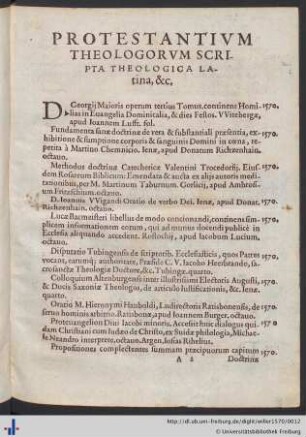 PROTESTANTIVM
THEOLOGORVM SCRI-
PTA THEOLOGICA LA-
tina, &c.
D. Georgij Maioris operum tertius Tomus, continens Homi- 1570.
lias in Euangelia Dominicalia, & dies Festos. VViteberge,
apud Ioannem Lufft. fol.
Fundamenta sanæ doctrinæ de vera & substantiali præsentia, ex- 1570.
hibitione & sumptione corporis & sanguinis Domini in cœna, re-
petita à Martino Chemnicio. Ienæ, apud Donatum Richzenhain.
octauo.
Methodus doctrinæ Catecheticæ Valentini Trocedorfij, Eius- 1570.
dem Rosarium Bibliorum Emendata & aucta ex alijs autoris medi-
tationibus, per M. Martinum Taburnum. Gorlicij, apud Ambros.
Fritschium. octauo.
D. Ioannis VVigandi Oratio de verbo Dei. Ienæ, apud Donat. 1570.
Richzenhain. octauo.
Lucæ Bacmeisteri libellus de modo concionandi, continens sim- 1570.
plicem informationem eorum, qui ad munus docendi publicè in
Ecclesia aliquando accedent. Rostochij, apud Iacobum Lucium.
octauo.
Disputatio Tubingensis de scriptorib. Ecclesiasticis, quos Patres 1570.
vocant, eorumq; authoritate, Præside C. V. Iacobo Heerbrando, sa-
crosanctæ Theologiæ Doctore, &c. Tubingæ. quarto.
Colloquium Altenburgense inter illustrissimi Electoris Augusti, 1570.
& Ducis Saxoniæ Theologos, de articulo Iustificationis, &c. Ienæ.
quarto.
Oratio M. Hieronymi Hauboldi, Ludirectoris Ratisbonensis, de 1570.
seruo hominis arbitrio. Ratisbonæ, apud Ioannem Burger. octauo.
Proteuangelion Diui Iacobi minoris, Accessit huic dialogus qui- 1570
dam Christiani cum Iudæo de Christo, ex Suida philologia, Micha-
le Neandro interprete. octauo. Argen. Iosias Rihelius.
Propositiones complectentes summam præcipuorum capitum 1570.
A 2 Doctrinæ
http://dl.ub.uni-freiburg.de/diglit/willer1570/0012
© Universitätsbibliothek Freiburg